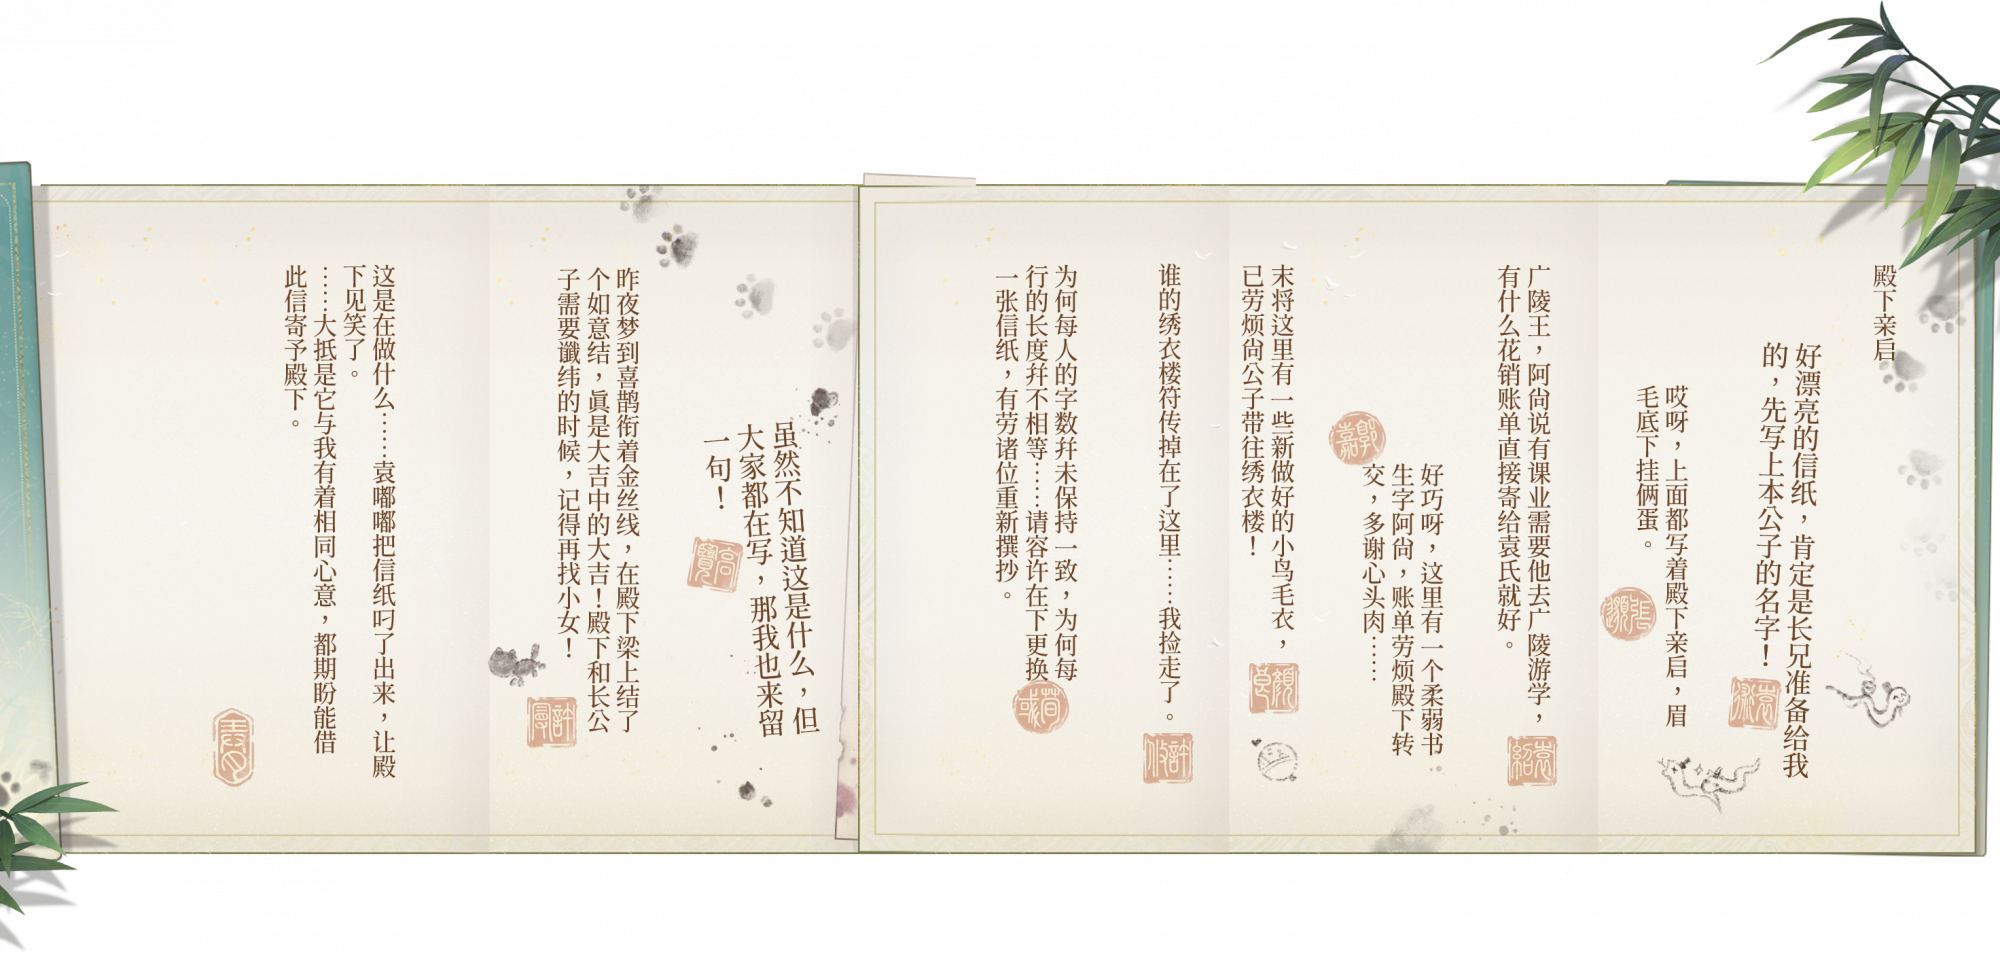 殿下亲启
好漂亮的信纸，肯定是长兄准备给我
的，先写上本公子的名字！
袁术
哎呀，上面都写着殿下亲启，眉
毛底下挂俩蛋。
张邈
广陵王，阿尙说有课业需要他去广陵游学，
有什么花销账单直接寄给袁氏就好。
袁绍
好巧呀，这里有一个柔弱书
生字阿尙，账单劳烦殿下转
交，多谢心头肉……
郭嘉
末将这里有一些新做好的小鸟毛衣，
已劳烦尙公子带往绣衣楼！
颜良
谁的绣衣楼符传掉在了这里……我捡走了。
許攸
为何每人的字数幷未保持一致，为何每
行的长度幷不相等……请容许在下更换
一张信纸，有劳诸位重新撰抄。
荀彧
虽然不知道这是什么，但
大家都在写，那我也来留
一句！
高覽
昨夜梦到喜鹊衔着金丝线，在殿下梁上结了
个如意结，眞是大吉中的大吉！殿下和长公
子需要谶纬的时候，记得再找小女！
許曼
这是在做什么……袁嘟嘟把信纸叼了出来，让殿
下见笑了。
……大抵是它与我有着相同心意，都期盼能借
此信寄予殿下。